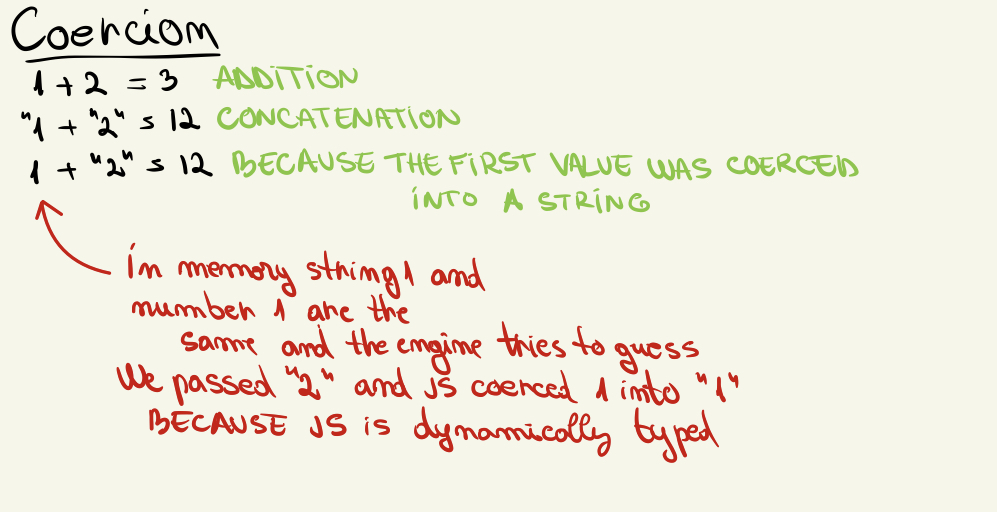 Coercion
1 + 2 = 3 ADDITION
"1 + "2" = 12 CONCATENATION
1 + "2" = 12 BECAUSE THE FIRST VALUE WAS COERCED
INTO A STRING
in memory string 1 and
number 1 are the
same and the engine tries to guess
We passed "2" and JS coerced 1 into "1"
BECAUSE JS is dynamically typed